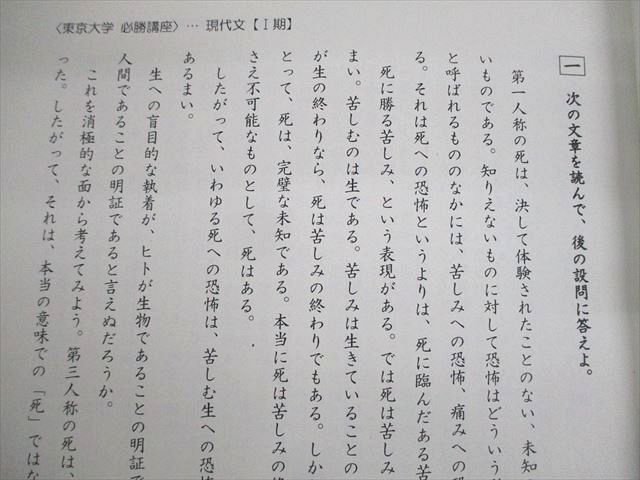 〈東京大学 必勝講座〉… 現代文【Ⅰ期】
一 次の文章を読んで、後の設問に答えよ。
第一人称の死は、決して体験されたことのない、未知
いものである。知りえないものに対して恐怖はどういう
と呼ばれるもののなかには、苦しみへの恐怖、痛みへの恐
る。それは死への恐怖というよりは、死に臨んだある苦
死に勝る苦しみ、という表現がある。では死は苦しみ
まい。苦しむのは生である。苦しみは生きていることの
が生の終わりなら、死は苦しみの終わりでもある。しか
とって、死は、完璧な未知である。本当に死は苦しみの
さえ不可能なものとして、死はある。
したがって、いわゆる死への恐怖は、苦しむ生への恐
あるまい。
生への盲目的な執着が、ヒトが生物であることの明証で
人間であることの明証であると言えぬだろうか。
これを消極的な面から考えてみよう。第三人称の死は、
った。したがって、それは、本当の意味での「死」ではな